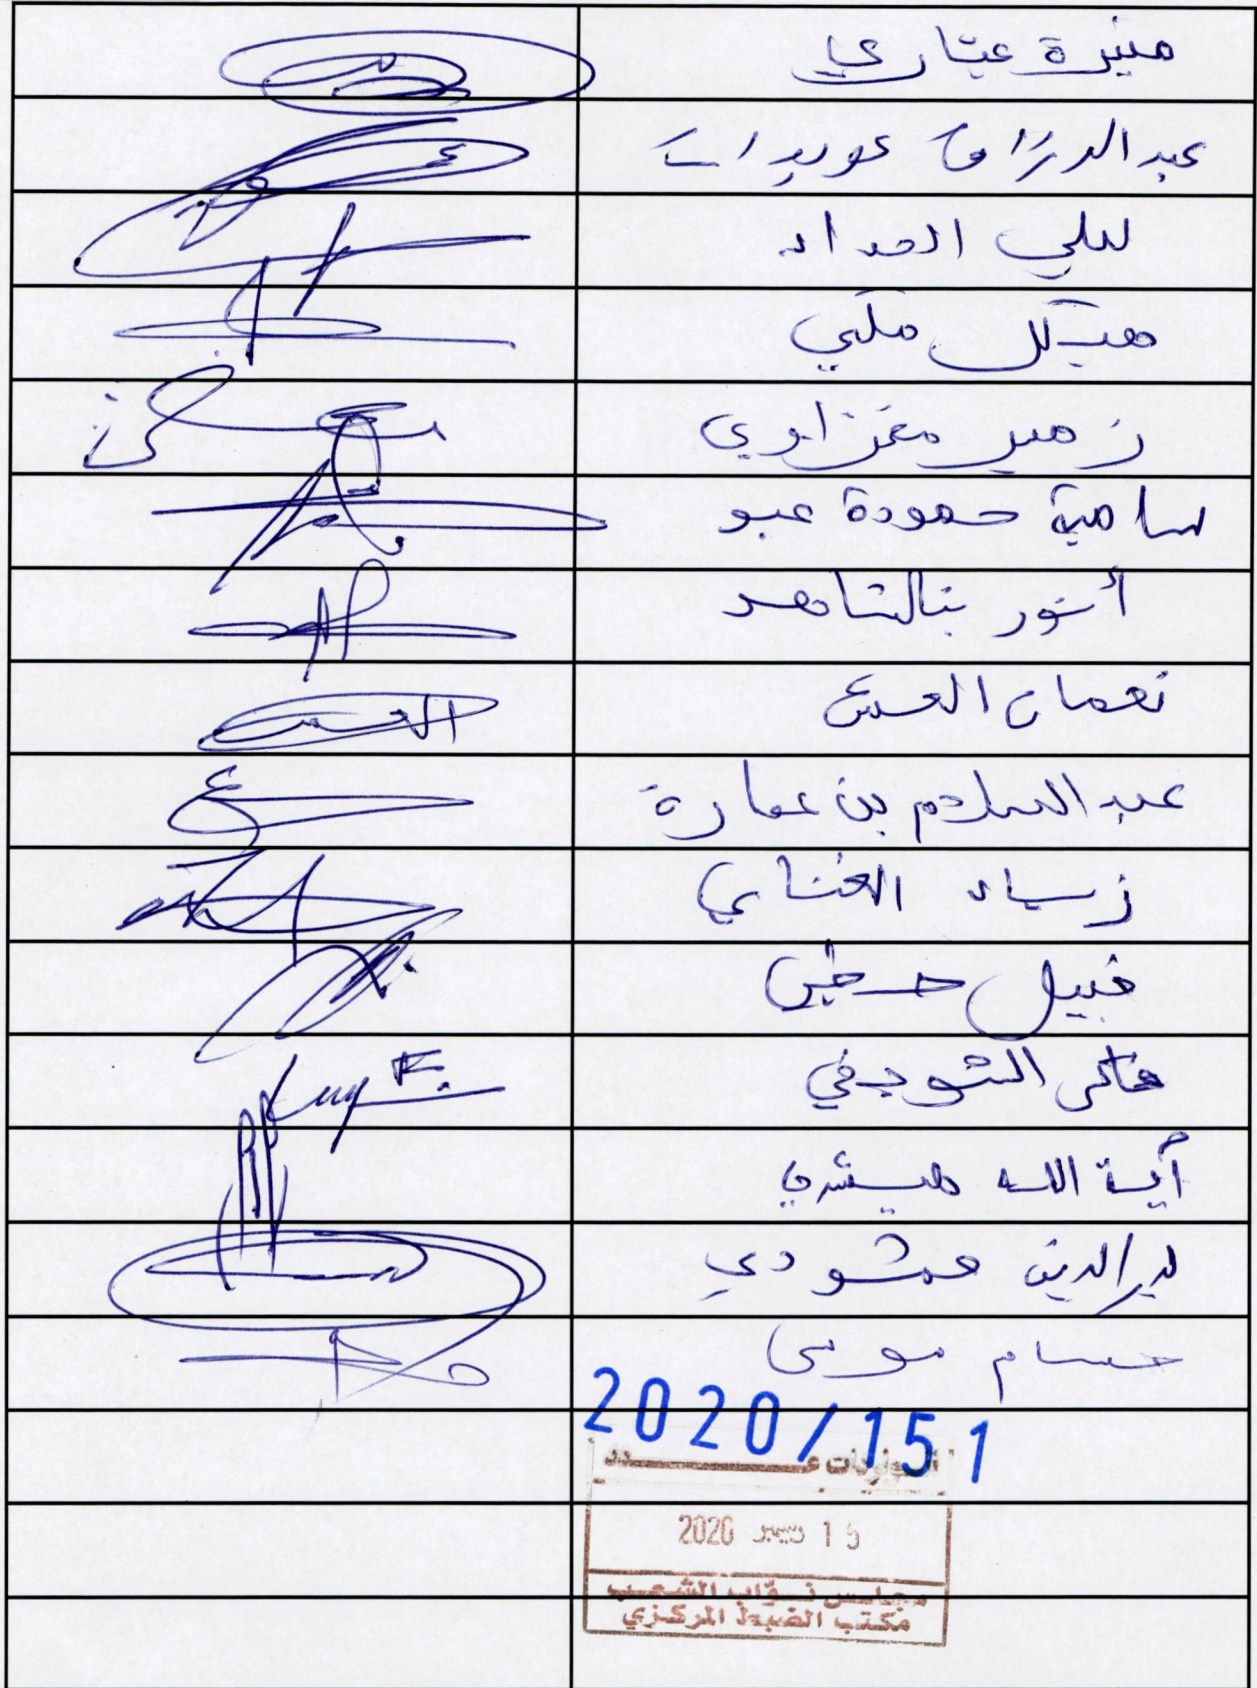 منيرة عيّاري
عبد الرزاق عويدات
ليلى الحداد
هيكل مكي
زهير مغزاوي
سامية حمودة عبو
أنور بالشاهد
نعمان العش
عبد السلام بن عمارة
زياد الغناي
نبيل حجي
خالد الشوجفي
آية الله هيشري
بدر الدين قمودي
حسام موسى
2020/151
الـواردات عـــدد
15 ديسمبر 2020
مجلس نـوّاب الشعب
مكتب الضبط المركزي